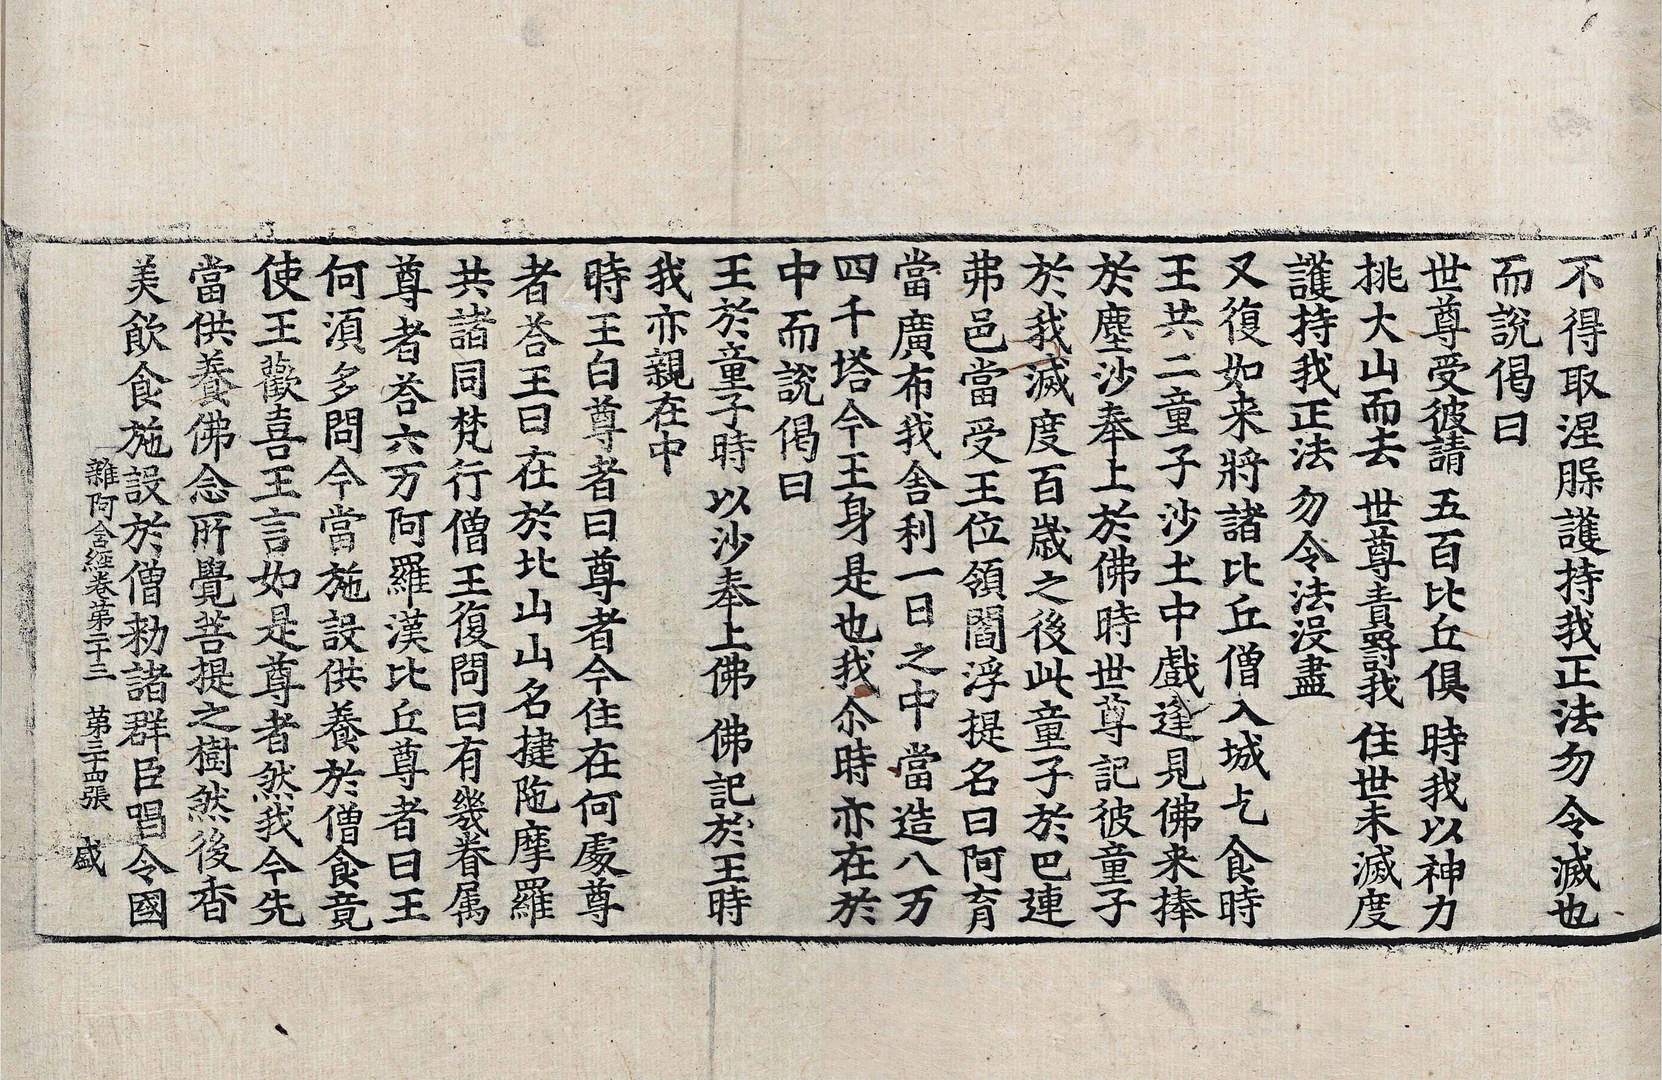 不得取涅槃護持我正法勿令滅也
而說偈曰
世尊受彼請 五百比丘俱 時我以神力
挑大山而去 世尊責罰我 住世未滅度
護持我正法 勿令法沒盡
又復如来將諸比丘僧入城乞食時
王共二童子沙土中戲逢見佛来捧
於塵沙奉上於佛時世尊記彼童子
於我滅度百歲之後此童子於巴連
弗邑當受王位領閻浮提名曰阿育
當廣布我舍利一日之中當造八万
四千塔今王身是也我尒時亦在於
中而說偈曰
王於童子時 以沙奉上佛 佛記於王時
我亦親在中
時王白尊者曰尊者今住在何處尊
者荅王曰在於北山山名揵陁摩羅
共諸同梵行僧王復問曰有幾眷属
尊者荅六万阿羅漢比丘尊者曰王
何須多問今當施設供養於僧食竟
使王歡喜王言如是尊者然我今先
當供養佛念所覺菩提之樹然後香
美飲食施設於僧勑諸群臣唱令國
雜阿含經卷第二十三 第三十四張 盛